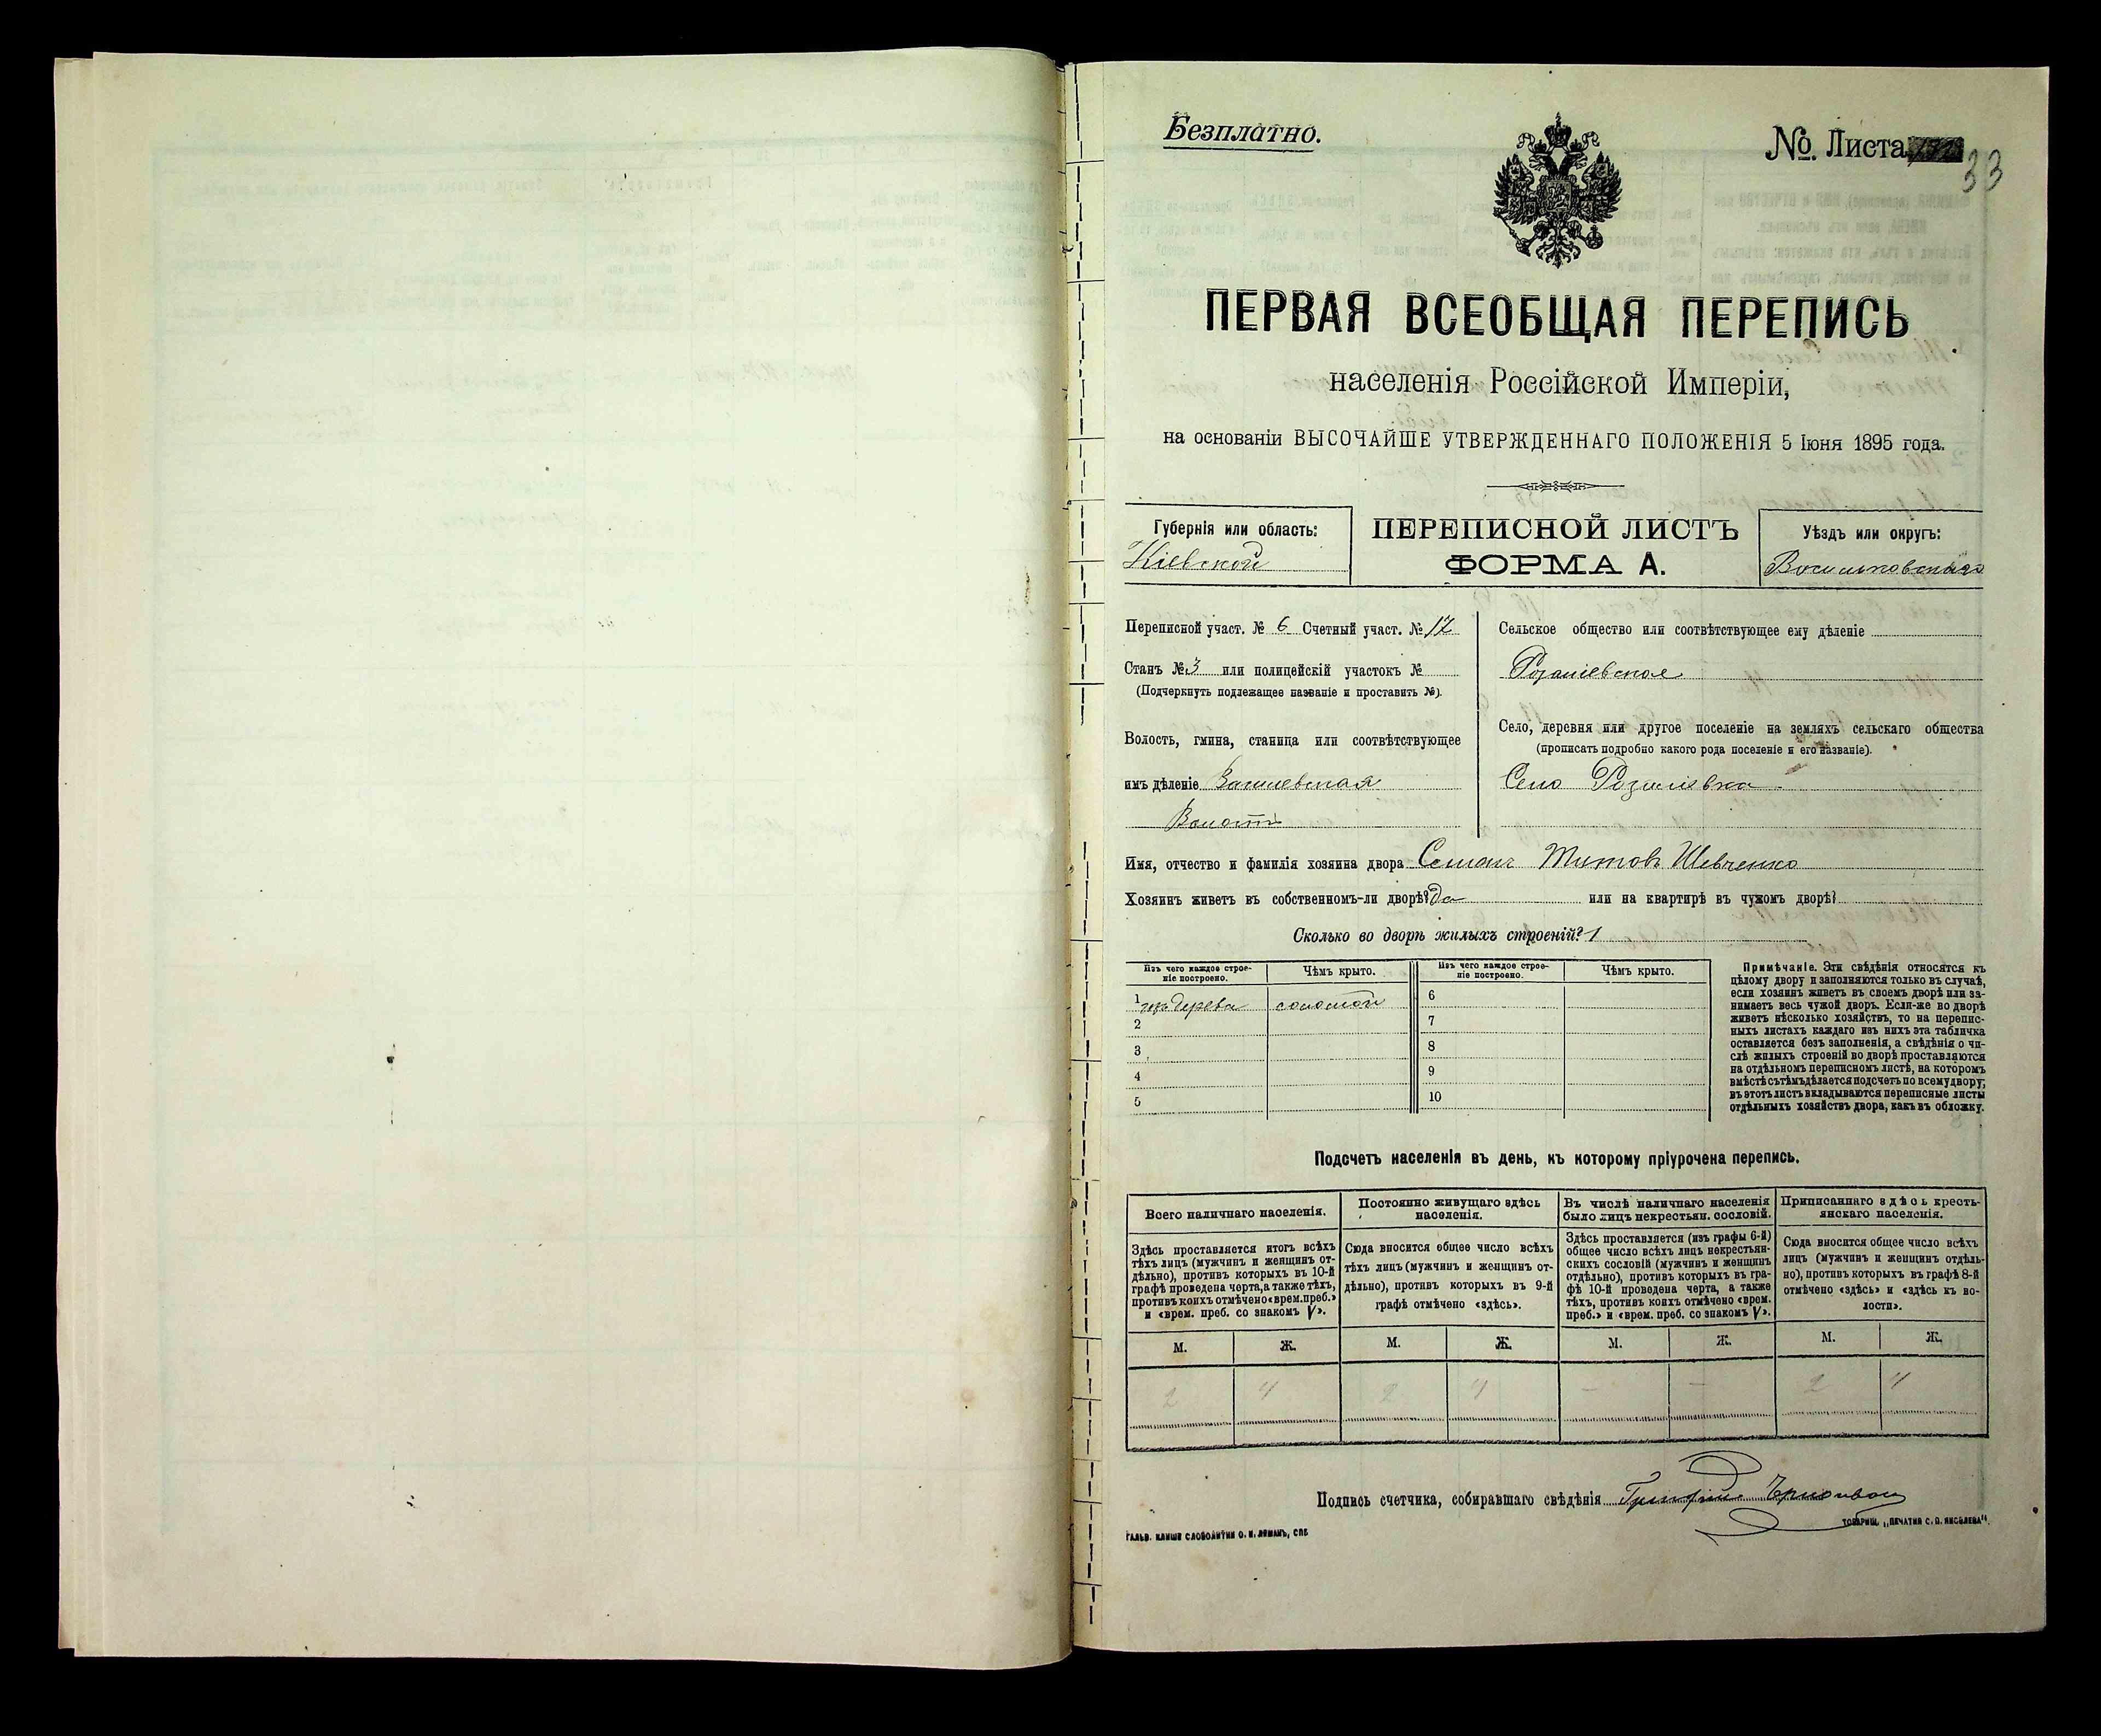 Безплатно.
№ Листа
33
ПЕРВАЯ ВСЕОБЩАЯ ПЕРЕПИСЬ
населенія Россійской Имперіи,
на основаніи ВЫСОЧАЙШЕ УТВЕРЖДЕННАГО ПОЛОЖЕНІЯ 5 Іюня 1895 года.
Губернія или область:
Кіевской
ПЕРЕПИСНОЙ ЛИСТЪ
ФОРМА А.
Уѣздъ или округъ:
Переписной участ. № 6 Счетный участ. № 12
Станъ № 3 или полицейскій участокъ №
(Подчеркнуть подлежащее названіе и проставить №).
Волость, гмина, станица или соотвѣтствующее
имъ дѣленіе
Волость
Сельское общество или соотвѣтствующее ему дѣленіе
Село, деревня или другое поселеніе на земляхъ сельскаго общества
(прописать подробно какого рода поселеніе и его названіе).
Село
Имя, отчество и фамилія хозяина двора Семенъ Титовъ Шевченко
Хозяинъ живетъ въ собственномъ-ли дворѣ? да или на квартирѣ въ чужомъ дворѣ?
Сколько во дворѣ жилыхъ строеній? 1
Изъ чего каждое строе-
ніе построено.
Чѣмъ крыто.
Изъ чего каждое строе-
ніе построено.
Чѣмъ крыто.
1 изъ дерева соломой
2
3
4
5
6
7
8
9
10
Примѣчаніе. Эти свѣдѣнія относятся къ
цѣлому двору и заполняются только въ случаѣ,
если хозяинъ живетъ въ своемъ дворѣ или за-
нимаетъ весь чужой дворъ. Если-же во дворѣ
живетъ нѣсколько хозяйствъ, то на перепис-
ныхъ листахъ каждаго изъ нихъ эта табличка
оставляется безъ заполненія, а свѣдѣнія о чи-
слѣ жилыхъ строеній во дворѣ проставляются
на отдѣльномъ переписномъ листѣ, на которомъ
вмѣстѣ съ тѣмъ дѣлается подсчетъ по всему двору;
въ этотъ листъ вкладываются переписные листы
отдѣльныхъ хозяйствъ двора, какъ въ обложку.
Подсчетъ населенія въ день, къ которому пріурочена перепись.
Всего наличнаго населенія.
Здѣсь проставляется итогъ всѣхъ
тѣхъ лицъ (мужчинъ и женщинъ от-
дѣльно), противъ которыхъ въ 10-й
графѣ проведена черта, а также тѣхъ,
противъ коихъ отмѣчено «врем. преб.»
и «врем. преб. со знакомъ V».
Постоянно живущаго здѣсь
населенія.
Сюда вносится общее число всѣхъ
тѣхъ лицъ (мужчинъ и женщинъ от-
дѣльно), противъ которыхъ въ 9-й
графѣ отмѣчено «здѣсь».
Въ числѣ наличнаго населенія
было лицъ некрестьян. сословій.
Здѣсь проставляется (изъ графы 6-й)
общее число всѣхъ лицъ некрестьян-
скихъ сословій (мужчинъ и женщинъ
отдѣльно), противъ которыхъ въ гра-
фѣ 10-й проведена черта, а также
тѣхъ, противъ коихъ отмѣчено «врем.
преб.» и «врем. преб. со знакомъ V».
Приписаннаго здѣсь кресть-
янскаго населенія.
Сюда вносится общее число всѣхъ
лицъ (мужчинъ и женщинъ отдѣль-
но), противъ которыхъ въ графѣ 8-й
отмѣчено «здѣсь» и «здѣсь къ во-
лости».
М. Ж. М. Ж. М. Ж. М. Ж.
2 4 2 4 — — 2 4
Подпись счетчика, собиравшаго свѣдѣнія
ГАЛЬВ. КЛИШЕ СЛОВОЛИТНИ О. И. ЛЕМАНЪ, СПБ
ТОВАРИЩ. „ПЕЧАТНЯ С. П. ЯКОВЛЕВА“.